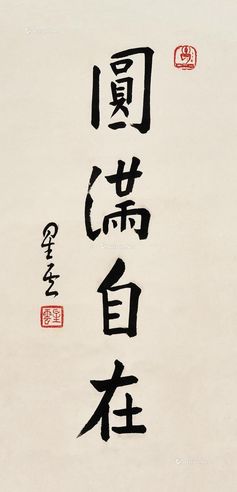 圓滿自在
星云